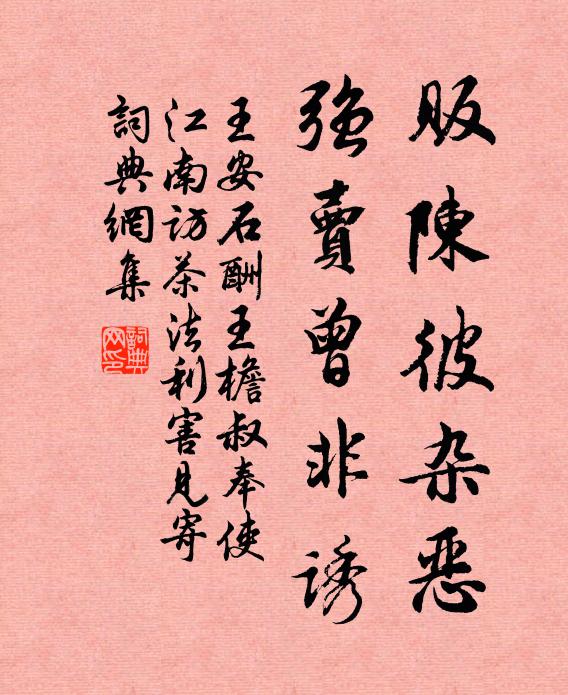 販陳彼杂恶
強賣曾非诱
王安石酬王檐叔奉使
江南访茶法利害見寄
詞典網集
詞典
网印